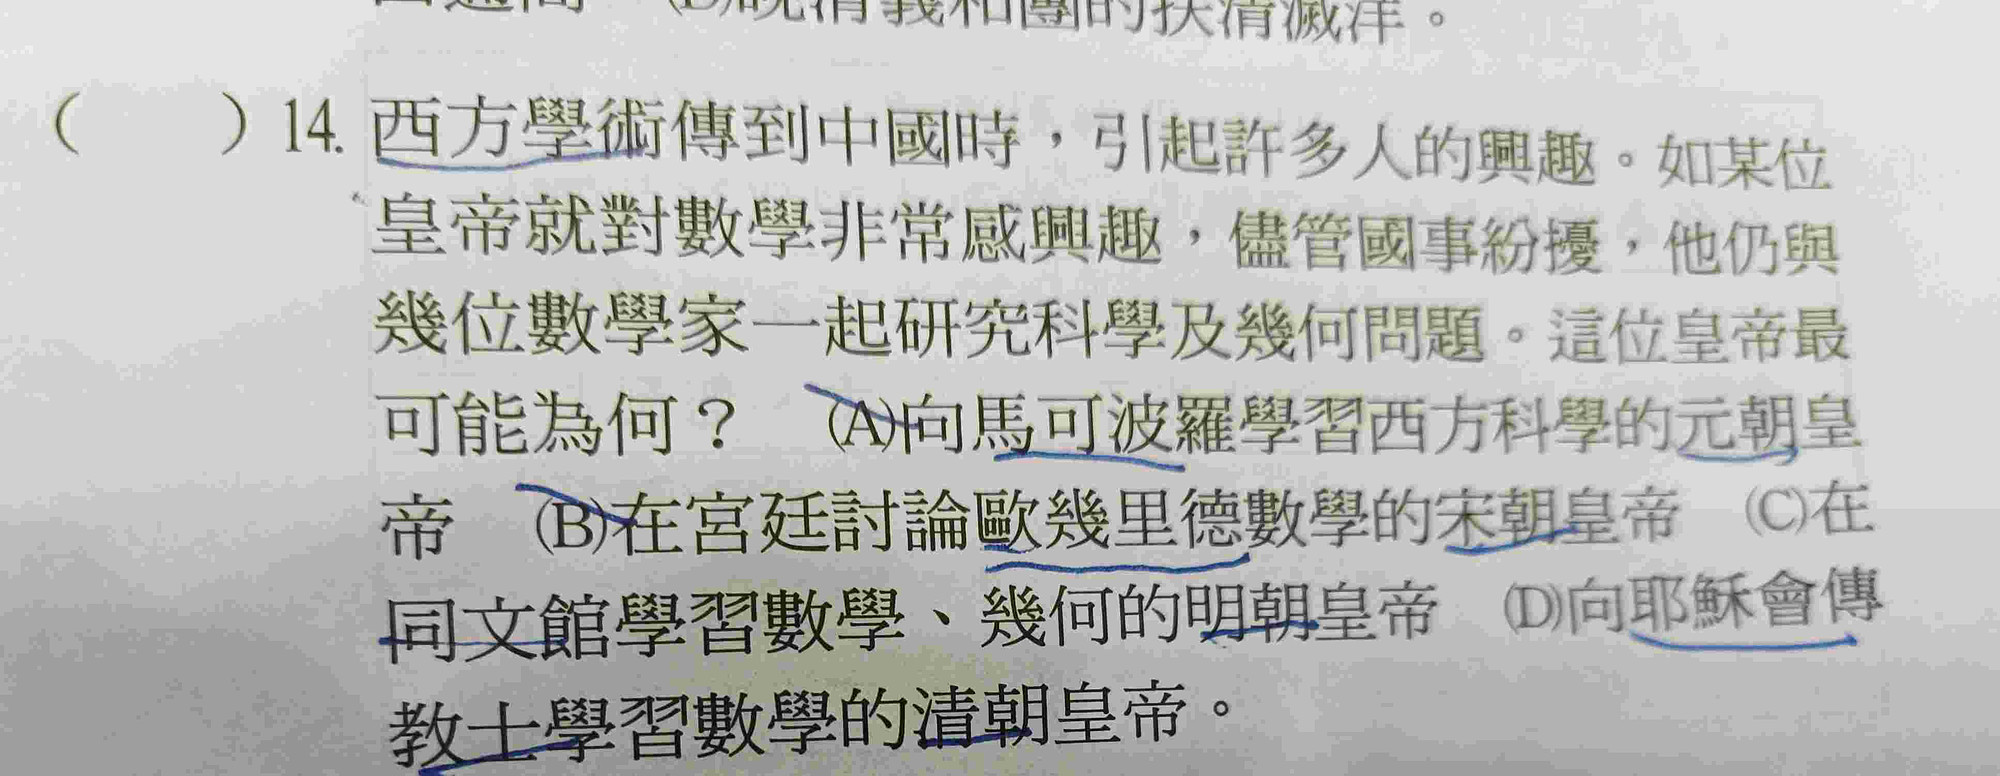 (D)晚清義和團的扶清滅洋。
( )14. 西方學術傳到中國時，引起許多人的興趣。如某位
皇帝就對數學非常感興趣，儘管國事紛擾，他仍與
幾位數學家一起研究科學及幾何問題。這位皇帝最
可能為何？ (A)向馬可波羅學習西方科學的元朝皇
帝 (B)在宮廷討論歐幾里德數學的宋朝皇帝 (C)在
同文館學習數學、幾何的明朝皇帝 (D)向耶穌會傳
教士學習數學的清朝皇帝。